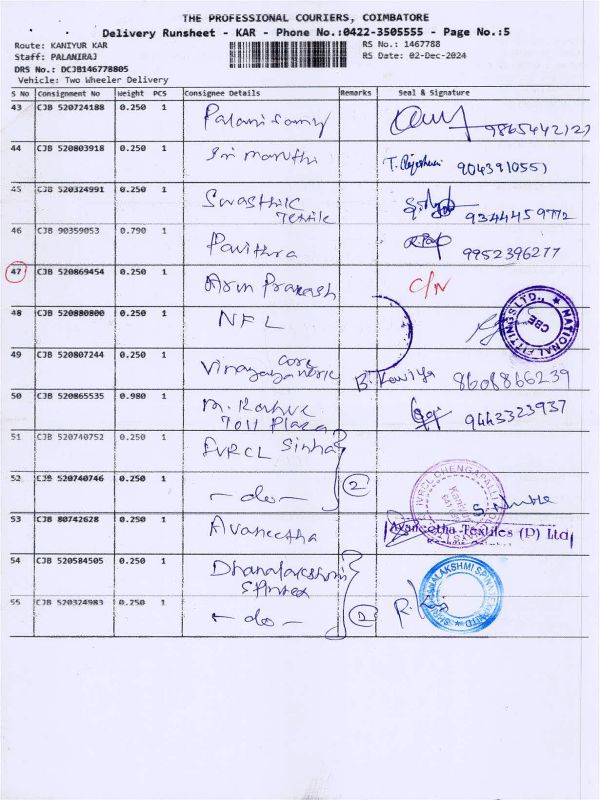 THE PROFESSIONAL COURIERS, COIMBATORE
Delivery Runsheet - KAR - Phone No.:0422-3505555 - Page No.:5
Route: KANIYUR KAR
RS No.: 1467788
Staff: PALANIRAJ
RS Date: 02-Dec-2024
DRS No.: DCJB146778805
Vehicle: Two Wheeler Delivery
S No Consignment No Weight PCS Consignee Details Remarks Seal & Signature
43 CJB 520724188 0.250 1
Palanisamy 9865442127
44 CJB 520803918 0.250 1
Sri maruthi 9043910551
45 CJB 520324991 0.250 1
Swasthik 9344459772
Textile
46 CJB 90359053 0.790 1
Pavithra 9952396277
47 CJB 520869454 0.250 1
Arun Prakash C/N
48 CJB 520880800 0.250 1
NFL
NATIONAL FITTINGS LTD., CBE
49 CJB 520807244 0.250 1
B. Kaviya 8608866239
50 CJB 520865535 0.980 1
9443323937
Toll Plaza
51 CJB 520740752 0.250 1
52 CJB 520740746 0.250 1
- do - 2
53 CJB 80742628 0.250 1
Avaneetha
Avaneetha Textiles (P) Ltd
54 CJB 520584505 0.250 1
Dhanalakshmi
Spintex
55 CJB 520324983 0.250 1
- do - 2